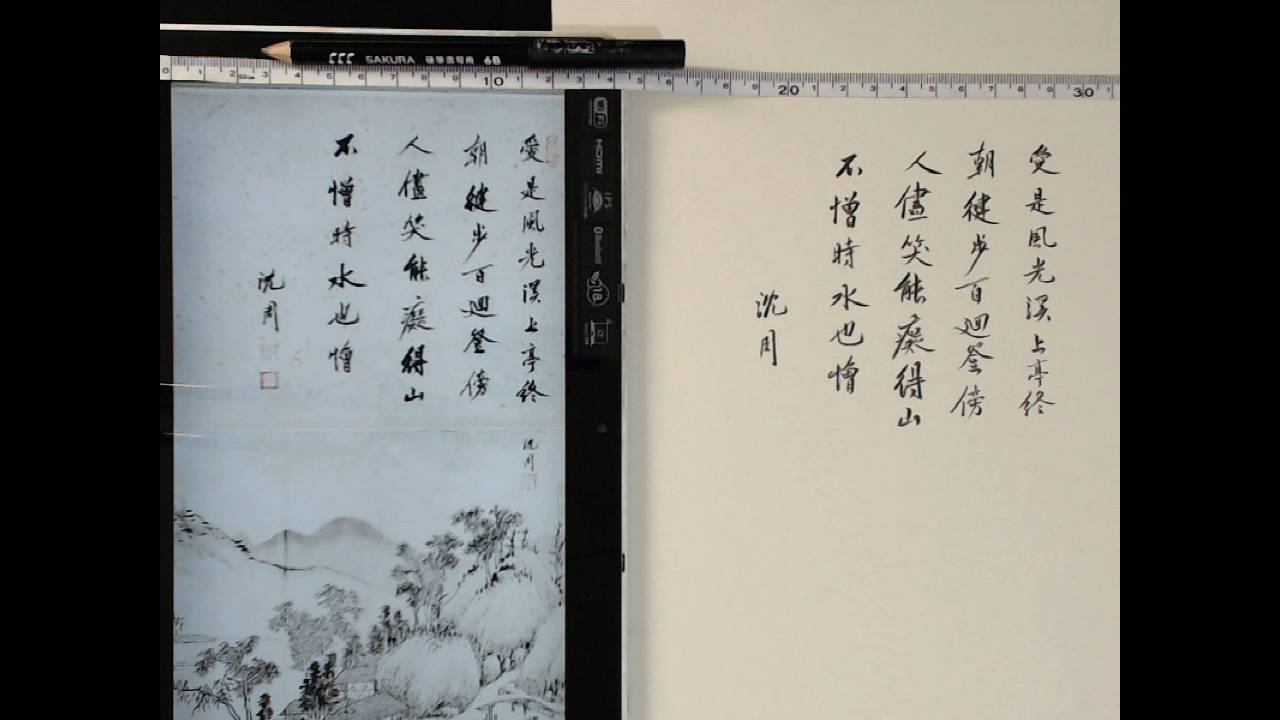 SAKURA 硬筆書写用 6B
10 20 30
愛是風光溪上亭終
朝徤步百迴登傍
人儘笑能癡得山
不憎時水也憎
沈周
沈周
Wi-Fi
HDMI
IPS
Bluetooth
愛是風光溪上亭終
朝徤步百迴登傍
人儘笑能癡得山
不憎時水也憎
沈周